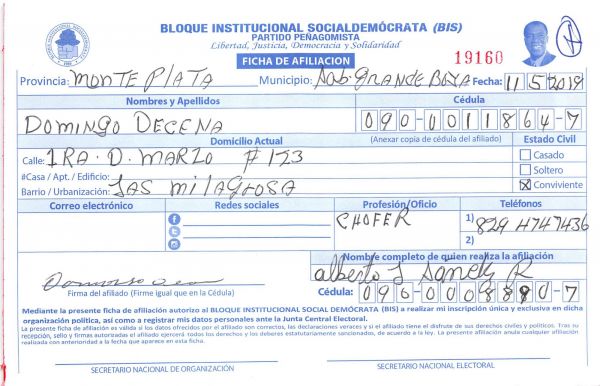 BLOQUE INSTITUCIONAL SOCIALDEMÓCRATA (BIS)
PARTIDO PEÑAGOMISTA
Libertad, Justicia, Democracia y Solidaridad
FICHA DE AFILIACION
19160
Provincia: MONTE PLATA Municipio: SAB. GRANDE BOYA Fecha: 11 5 2019
Nombres y Apellidos Cédula
DOMINGO DECENA 090-0011864-7
Domicilio Actual (Anexar copia de cédula del afiliado) Estado Civil
Calle: 1RA. D. MARZO # 123 Casado
#Casa / Apt. / Edificio: Soltero
Barrio / Urbanización: LAS MILAGROSA Conviviente
Correo electrónico Redes sociales Profesión/Oficio Teléfonos
CHOFER 1) 829 4747436
2)
Nombre completo de quien realiza la afiliación
alberto
Firma del afiliado (Firme igual que en la Cédula) Cédula: 090-0008880-7
Mediante la presente ficha de afiliación autorizo al BLOQUE INSTITUCIONAL SOCIAL DEMÓCRATA (BIS) a realizar mi inscripción única y exclusiva en dicha
organización política, así como a registrar mis datos personales ante la Junta Central Electoral.
La presente ficha de afiliación es válida si los datos ofrecidos por el afiliado son correctos, las declaraciones veraces y si el afiliado tiene el disfrute de sus derechos civiles y políticos. Tras su
recepción, sello y firmas autorizadas el afiliado ejercerá todos los derechos y los deberes estatutariamente sancionados, de acuerdo a la ley. La presente afiliación anula cualquier afiliación
realizada con anterioridad a la fecha que aparece en esta ficha.
SECRETARIO NACIONAL DE ORGANIZACIÓN SECRETARIO NACIONAL ELECTORAL